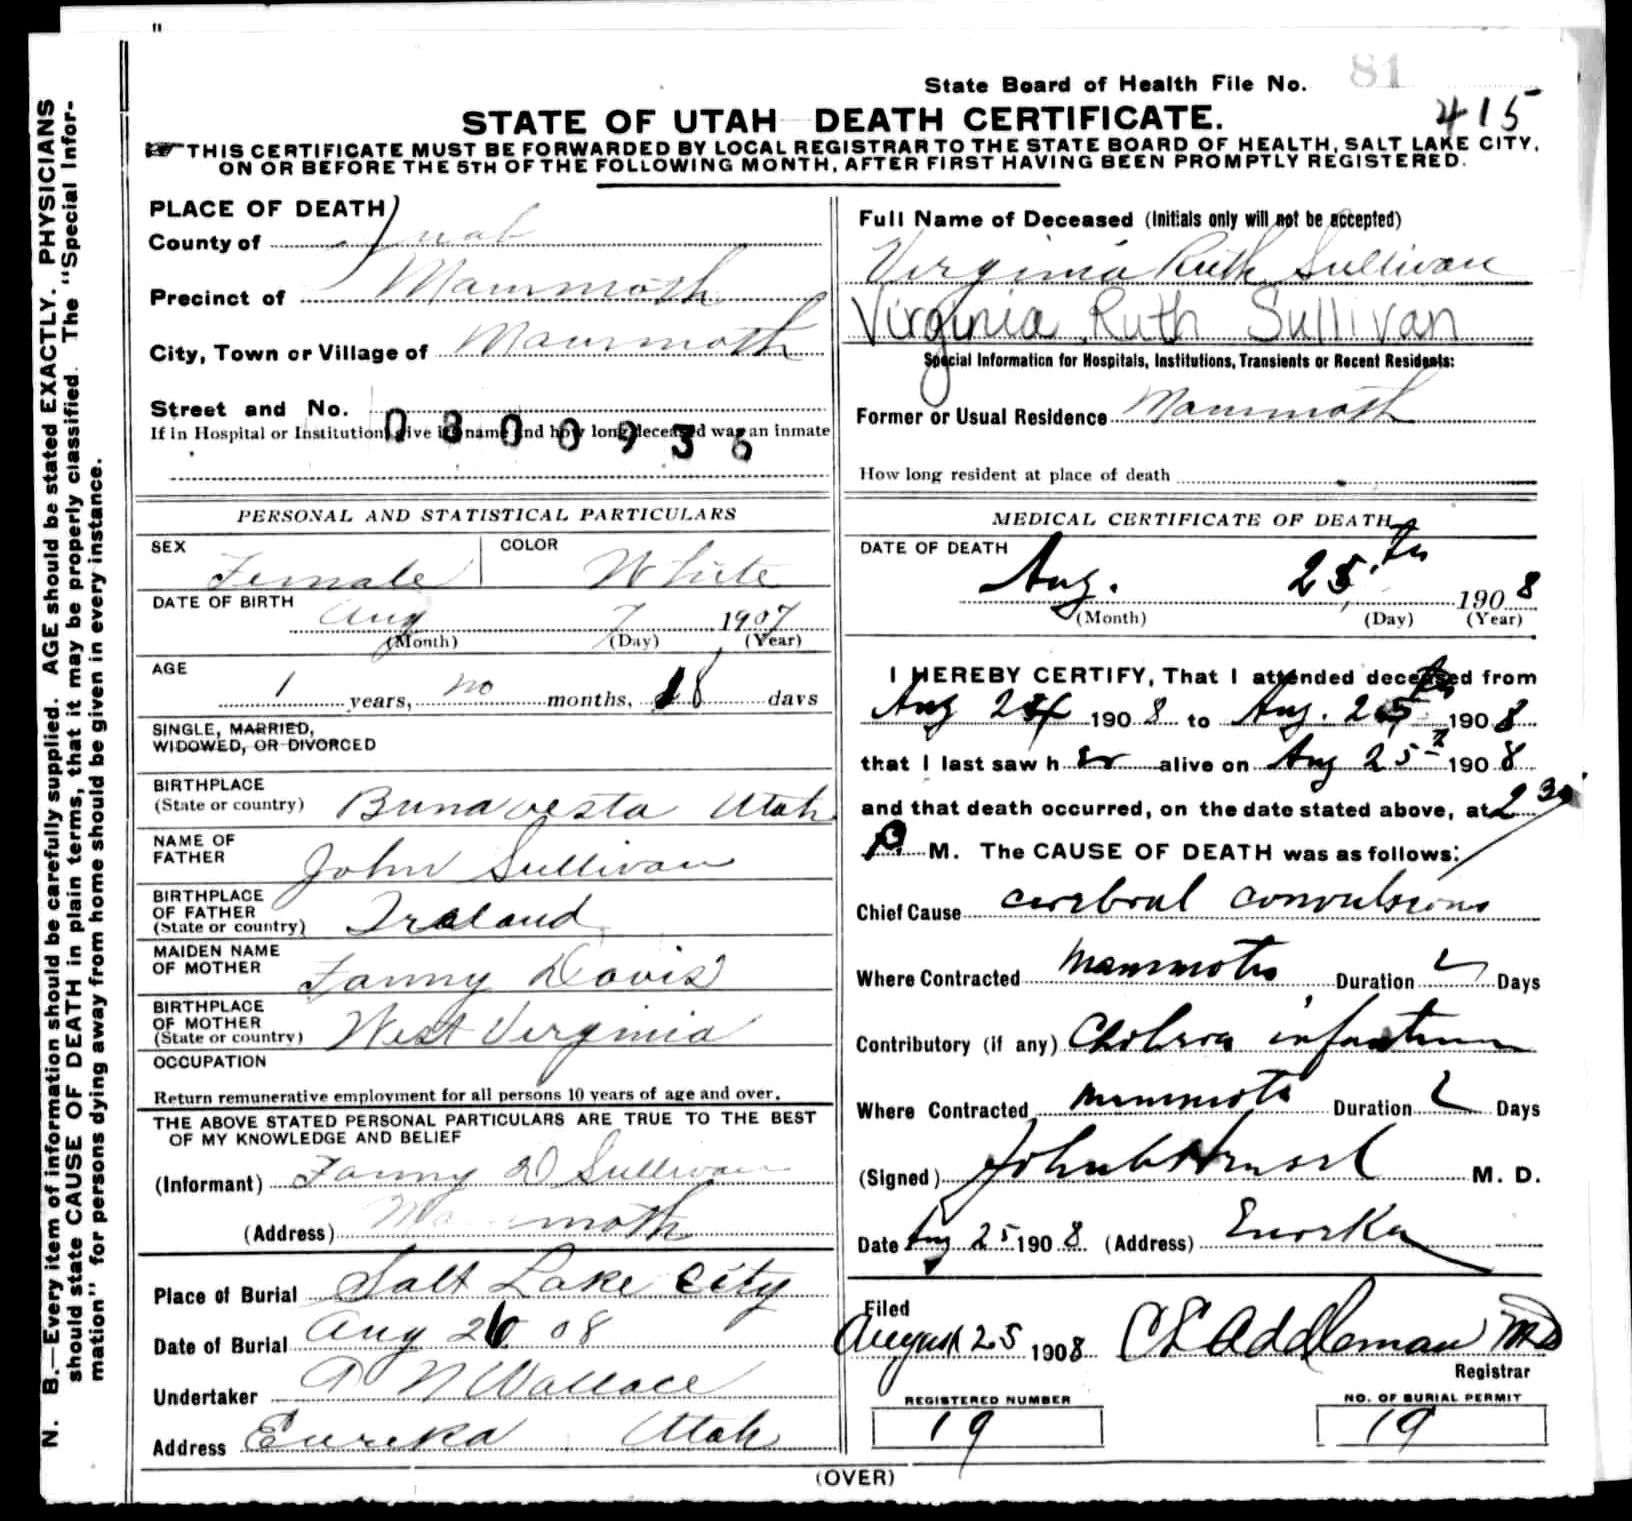 N. B.—Every item of information should be carefully supplied. AGE should be stated EXACTLY. PHYSICIANS
should state CAUSE OF DEATH in plain terms, that it may be properly classified. The "Special Infor-
mation" for persons dying away from home should be given in every instance.
State Board of Health File No. 81
415
STATE OF UTAH DEATH CERTIFICATE.
THIS CERTIFICATE MUST BE FORWARDED BY LOCAL REGISTRAR TO THE STATE BOARD OF HEALTH, SALT LAKE CITY,
ON OR BEFORE THE 5TH OF THE FOLLOWING MONTH, AFTER FIRST HAVING BEEN PROMPTLY REGISTERED.
PLACE OF DEATH
County of Juab
Precinct of Mammoth
City, Town or Village of Mammoth
Street and No.
0300936
If in Hospital or Institution, give its name and how long deceased was an inmate
Full Name of Deceased (Initials only will not be accepted)
Virginia Ruth Sullivan
Virginia Ruth Sullivan
Special Information for Hospitals, Institutions, Transients or Recent Residents:
Former or Usual Residence Mammoth
How long resident at place of death
PERSONAL AND STATISTICAL PARTICULARS
SEX Female COLOR White
DATE OF BIRTH
Aug 7 1907
(Month) (Day) (Year)
AGE
1 years, no months, 18 days
SINGLE, MARRIED,
WIDOWED, OR DIVORCED
BIRTHPLACE
(State or country) Bunavesta Utah
NAME OF
FATHER John Sullivan
BIRTHPLACE
OF FATHER
(State or country) Ireland
MAIDEN NAME
OF MOTHER Fanny Davis
BIRTHPLACE
OF MOTHER
(State or country) West Virginia
OCCUPATION
Return remunerative employment for all persons 10 years of age and over.
THE ABOVE STATED PERSONAL PARTICULARS ARE TRUE TO THE BEST
OF MY KNOWLEDGE AND BELIEF
(Informant) Fanny D Sullivan
(Address) Mammoth
Place of Burial Salt Lake City
Date of Burial Aug 26 08
Undertaker N Wallace
Address Eureka Utah
MEDICAL CERTIFICATE OF DEATH
DATE OF DEATH
Aug. 25th 1908
(Month) (Day) (Year)
I HEREBY CERTIFY, That I attended deceased from
Aug 24 1908 to Aug. 25th 1908
that I last saw her alive on Aug 25th 1908
and that death occurred, on the date stated above, at 2 30
P. M. The CAUSE OF DEATH was as follows:
Chief Cause cerebral convulsions
Where Contracted Mammoth Duration Days
Contributory (if any) Cholera infantum
Where Contracted Mammoth Duration Days
(Signed) John M. D.
Date Aug 25 1908 (Address) Eureka
Filed
August 25 1908 C E Addleman MD
Registrar
REGISTERED NUMBER
19
NO. OF BURIAL PERMIT
19
(OVER)